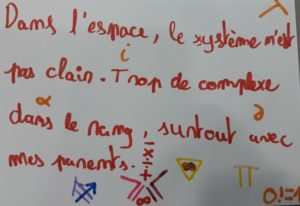 Dans l'espace, le système n'est
i
pas clair. Trop de complexe
α ∂
dans le rang, surtout avec
mes parents.
1×1+
∞
π
0!=1